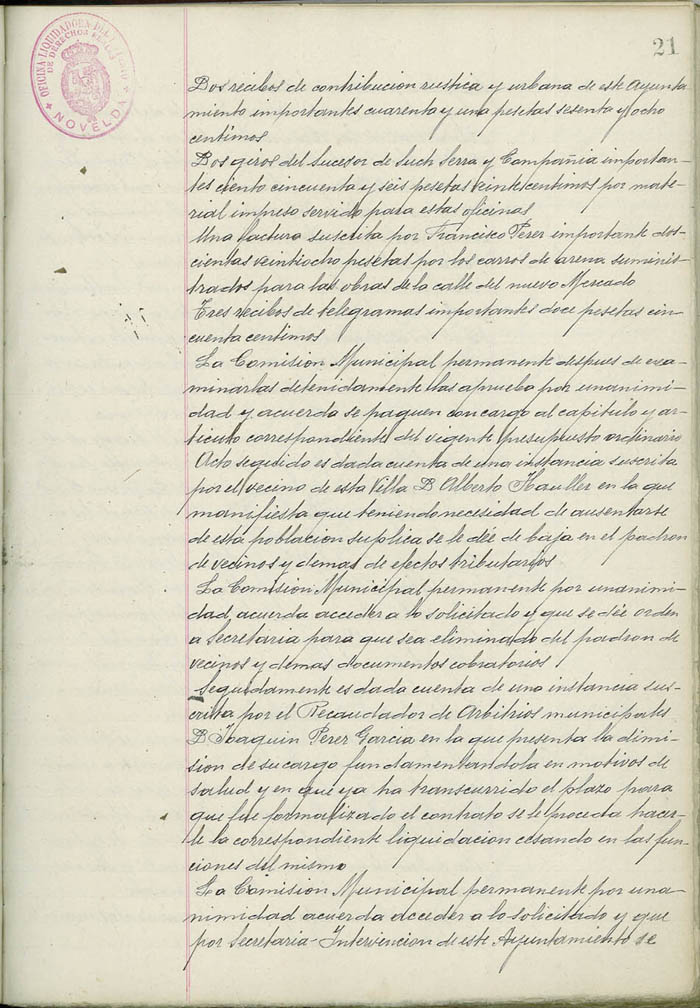 21
OFICINA LIQUIDADORA DEL
DE DERECHOS REALES
NOVELDA
Dos recibos de contribucion rustica y urbana de este Ayunta
miento importantes cuarenta y una pesetas sesenta y ocho
centimos
Dos giros del Sucesor de Such Serra y Compañia importan-
tes ciento cincuenta y seis pesetas veinte centimos por mate-
rial impreso servido para estas oficinas
Una factura suscrita por Francisco Perez importante dos-
cientas veintiocho pesetas por los carros de arena suminis-
trados para las obras de la calle del nuevo Mercado
Tres recibos de telegramas importantes doce pesetas cin-
cuenta centimos
La Comision Municipal permanente despues de exa-
minarlas detenidamente las aprueba por unanimi-
dad y acuerda se paguen con cargo al capitulo y ar-
ticulo correspondiente del vigente presupuesto ordinario
Acto seguido es dada cuenta de una instancia suscrita
por el vecino de esta Villa D Alberto en la que
manifiesta que teniendo necesidad de ausentarse
de esta poblacion suplica se le dée de baja en el padron
de vecinos y demas de efectos tributarios
La Comision Municipal permanente por unanimi-
dad acuerda acceder a lo solicitado y que se dée orden
a Secretaria para que sea eliminado del padron de
vecinos y demas documentos cobratorios
Seguidamente es dada cuenta de una instancia sus-
crita por el Recaudador de Arbitrios municipales
D Joaquin Perez Garcia en la que presenta la dimi-
sion de su cargo fundamentandola en motivos de
salud y en que ya ha transcurrido el plazo para
que fue formalizado el contrato se le proceda hacer-
le la correspondiente liquidacion cesando en las fun-
ciones del mismo
La Comision Municipal permanente por una-
nimidad acuerda acceder a lo solicitado y que
por Secretaria-Intervencion de este Ayuntamiento se